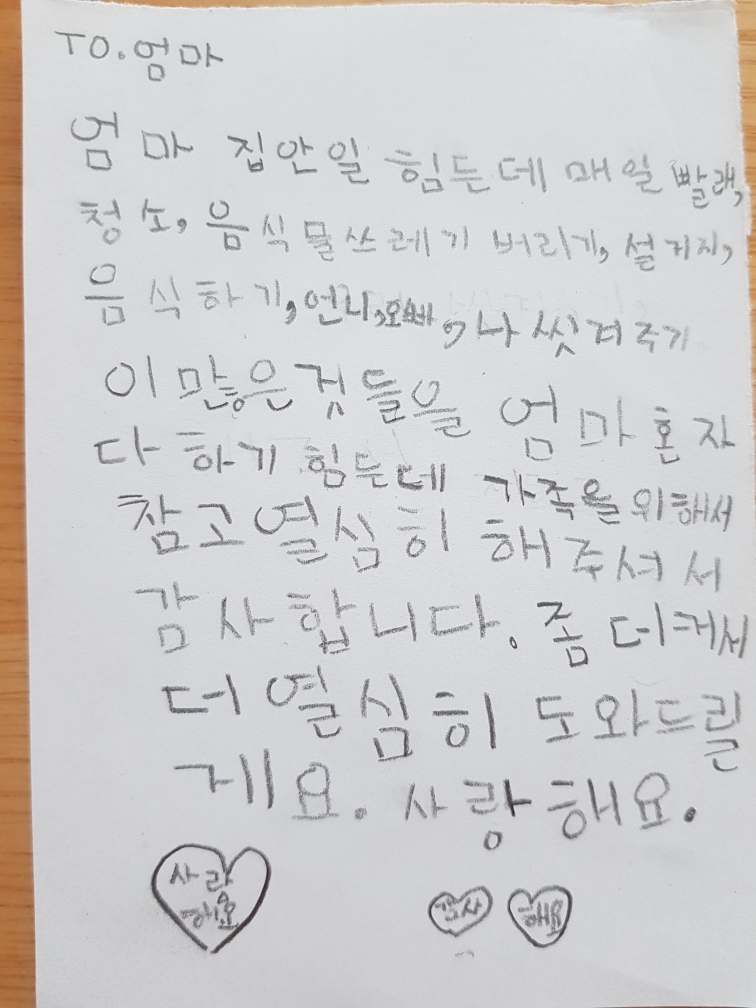 TO. 엄마
엄마 집안일 힘든데 매일 빨래,
청소, 음식물쓰레기 버리기, 설거지,
음식하기, 언니, 오빠, 나 씻겨주기
이 많은것들을 엄마 혼자
다 하기 힘든데 가족을 위해서
참고 열심히 해주셔서
감사합니다. 좀 더 커서
더 열심히 도와드릴
게요. 사랑해요.
사랑
해요
감사 해요